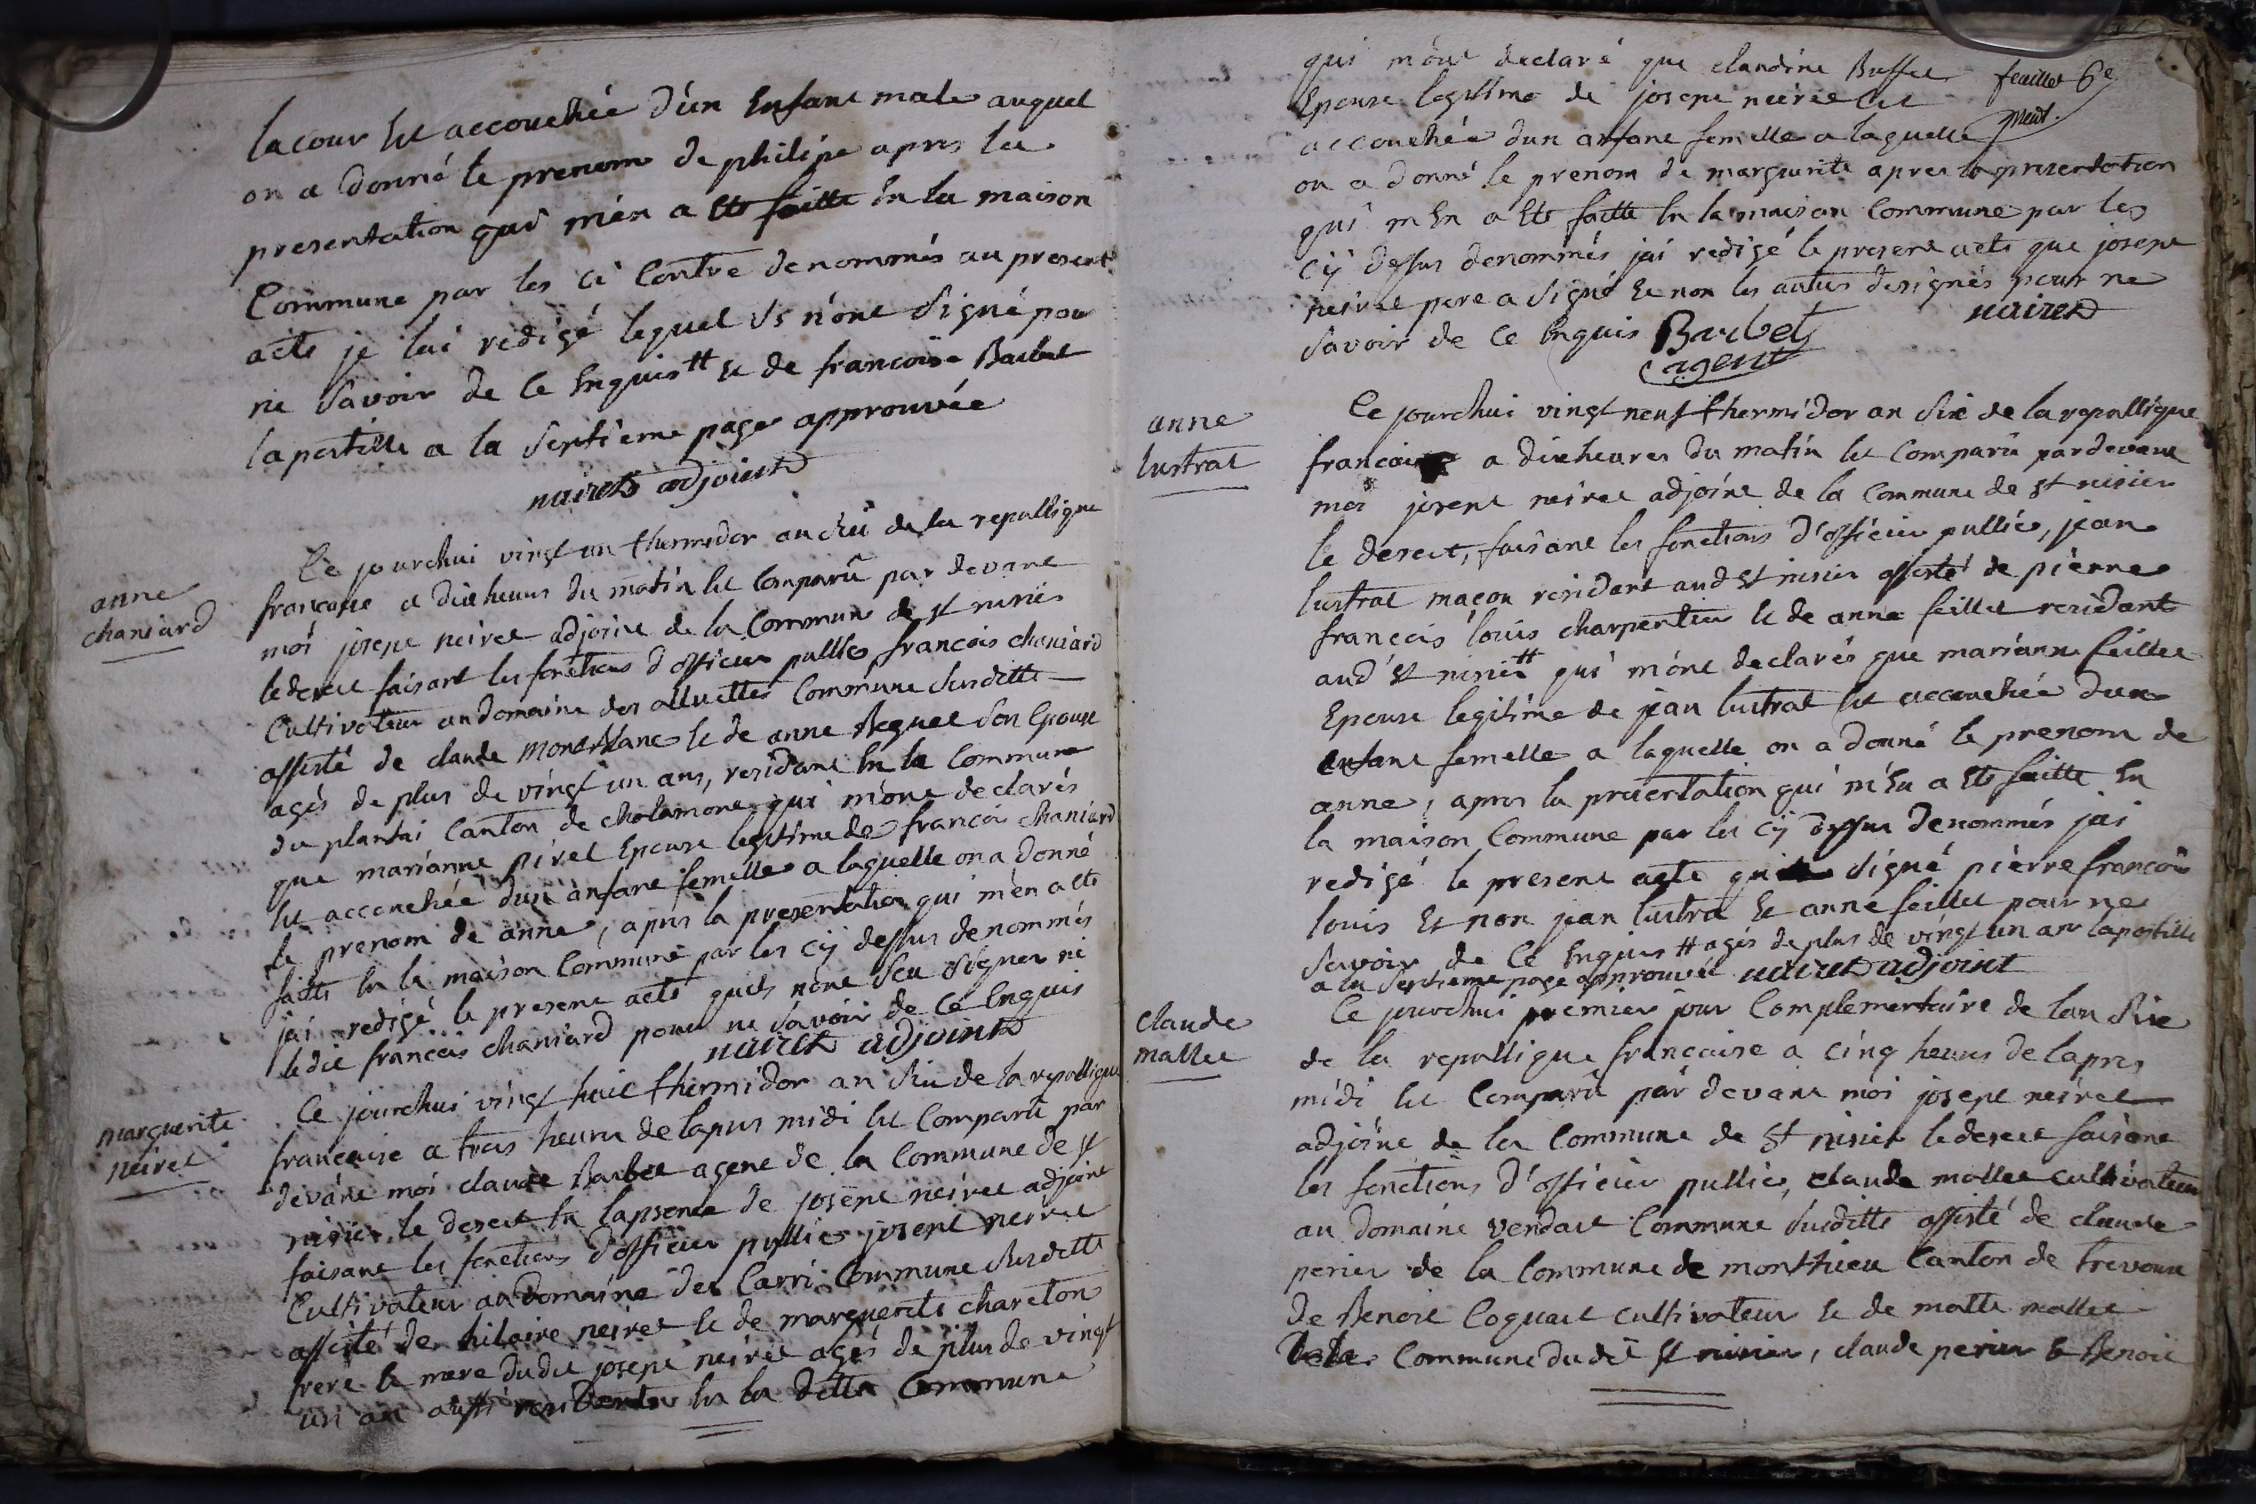 lacour Et accouchée d'un Enfant male auquel
on a donné le prenom de philipe apres la
presentation qui m'en a Ete faitte En la maison
Commune par les ci Contre denommés au present
acte je lai redigé lequel ils n'ont Signé pour
ne Savoir de Ce Enquis # Et de francoise Barbet
lapostille a la Septieme page approuvée
neiret adjoint
anne
chaniard
Ce jourdhui vingt un thermidor an Six de la republique
francaise a dix heures du matin Est Comparu par devant
moi josept neiret adjoint de la Commune de st nisier
le desert faisant les fonctions d'officier pullic francois chaniard
Cultivateur au domaine des alluettes Commune Susditte
assisté de claude montblanc Et de anne Requet Son Epouse
agés de plus de vingt un ans, residant En la Commune
du plantai Canton de chalamont qui m'ont declarés
que marianne pivet Epouse legitime de francois chaniard
Est accouchée d'un anfant femelle a laquelle on a donné
le prenom de anne, apres la presentation qui m'en a Ete
faitte En la maison Commune par les cy dessus denommés
jai redigé le present acte quils n'ont Seu Signer ni
ledit francois chaniard pour ne Savoir de Ce Enquis
neiret adjoint
marguerite
neiret
Ce jourdhui vingt huit thermidor an Six de la republique
francaise a trois heures de lapres midi Est Comparu par
devant moi claude Barbet agent de la Commune de st
nisier le desert En lapsence de josept neiret adjoint
faisant les fonctions d'officier pullic josept neiret
Cultivateur au domaine des Carri Commune Susditte
assisté de hilaire neiret Et de marguerite chareton
frere Et mere dudit josept neiret agés de plus de vingt
un an aussi residents En la ditte Commune
feuillet 6e
qui m'ont declaré que claudine Buffet
Epouse legitime de josept neiret Est
accouchée d'un anfant femelle a laquelle
on a donné le prenom de marguerite apres la presentation
qui m'En a Ete faitte En la maison Commune par les
cy dessus denommés jai redigé le present acte que josept
neiret pere a Signé Et non les autres designés pour ne
Savoir de Ce Enquis Barbet neiret
agent
anne
lustrat
Ce jourdhui vingt neuf thermidor an Six de la republique
francaise a dix heures du matin Est Comparu pardevant
moi josept neiret adjoint de la Commune de st nisier
le desert, faisant les fonctions d'officier pullic, jean
lustrat macon residant aud st nisier assisté de pierre
francois louis charpentier Et de anne feillet residants
aud st nisier # qui m'ont declarés que marianne feillet
Epouse legitime de jean lustrat Est accouchée d'un
enfant femelle a laquelle on a donné le prenom de
anne, apres la presentation qui m'En a Ete faitte En
la maison Commune par les cy dessus denommés jai
redigé le present acte Signé pierre francois
louis Et non jean lustra Et anne feillet pour ne
Savoir de Ce Enquis # agés de plus de vingt un an lapostille
a la Septieme page approuvée neiret adjoint
claude
mallet
Ce jourdhui premier jour Complementaire de lan Six
de la republique francaise a cinq heures de lapres
midi Est Comparu par devant moi josept neiret
adjoint de la Commune de st nisier le desert faisant
les fonctions d'officier pullic, claude mallet cultivateur
au domaine vendait Commune Susditte assisté de claude
perier de la Commune de monthieu Canton de trevoux
de Benoit Coquart cultivateur Et de matte mallet
de la Commune dudit st nisier, claude perier Et Benoit